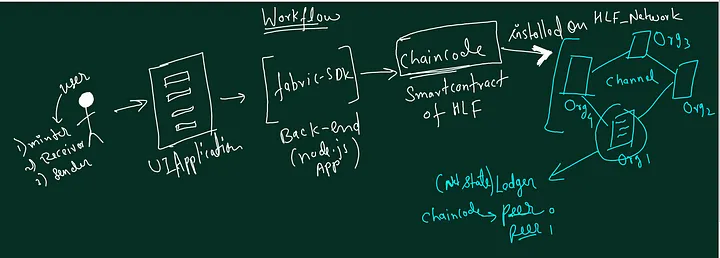 Workflow
user
1) minter
2) Receiver
3) Sender
UI Application
fabric-SDK
Back-end
(node.js
App)
chaincode
Smartcontract
of HLF
installed on HLF_Network
Org3
channel
Org4
Org2
Org1
Ledger
chaincode → peer 0
peer 1